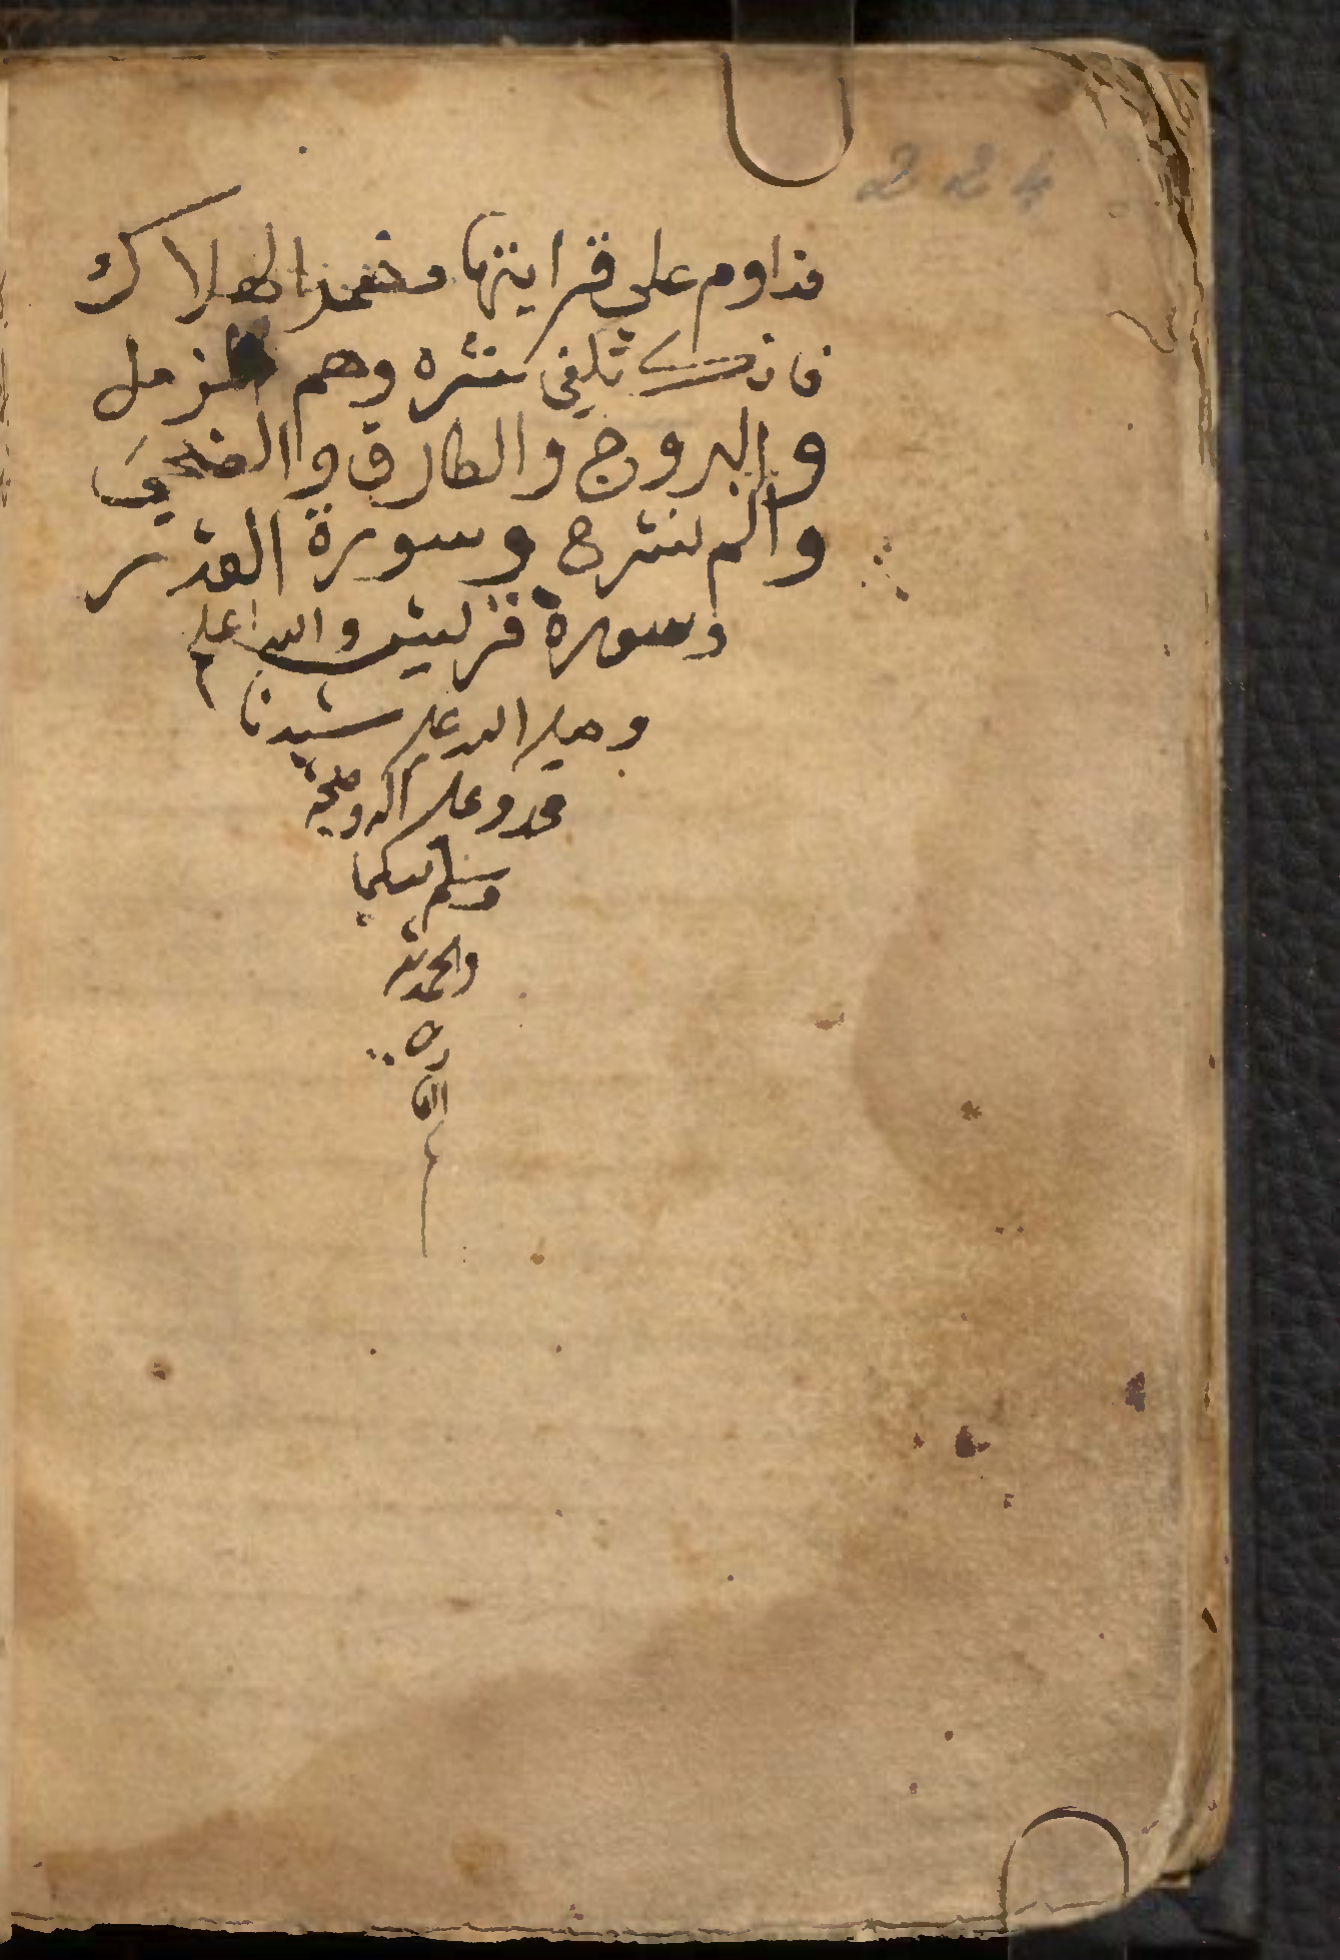 224
فداوم على قرايتها وخمد الهلاك
فانك تكفى شره وهم المزمل
والبروج والطارق والضحى
والم نشرح وسورة القدر
وسورة قريش والله اعلم
وصلى الله على سيدنا
محمد وعلى اله وصحبه
وسلم تسليما
والحمد لله